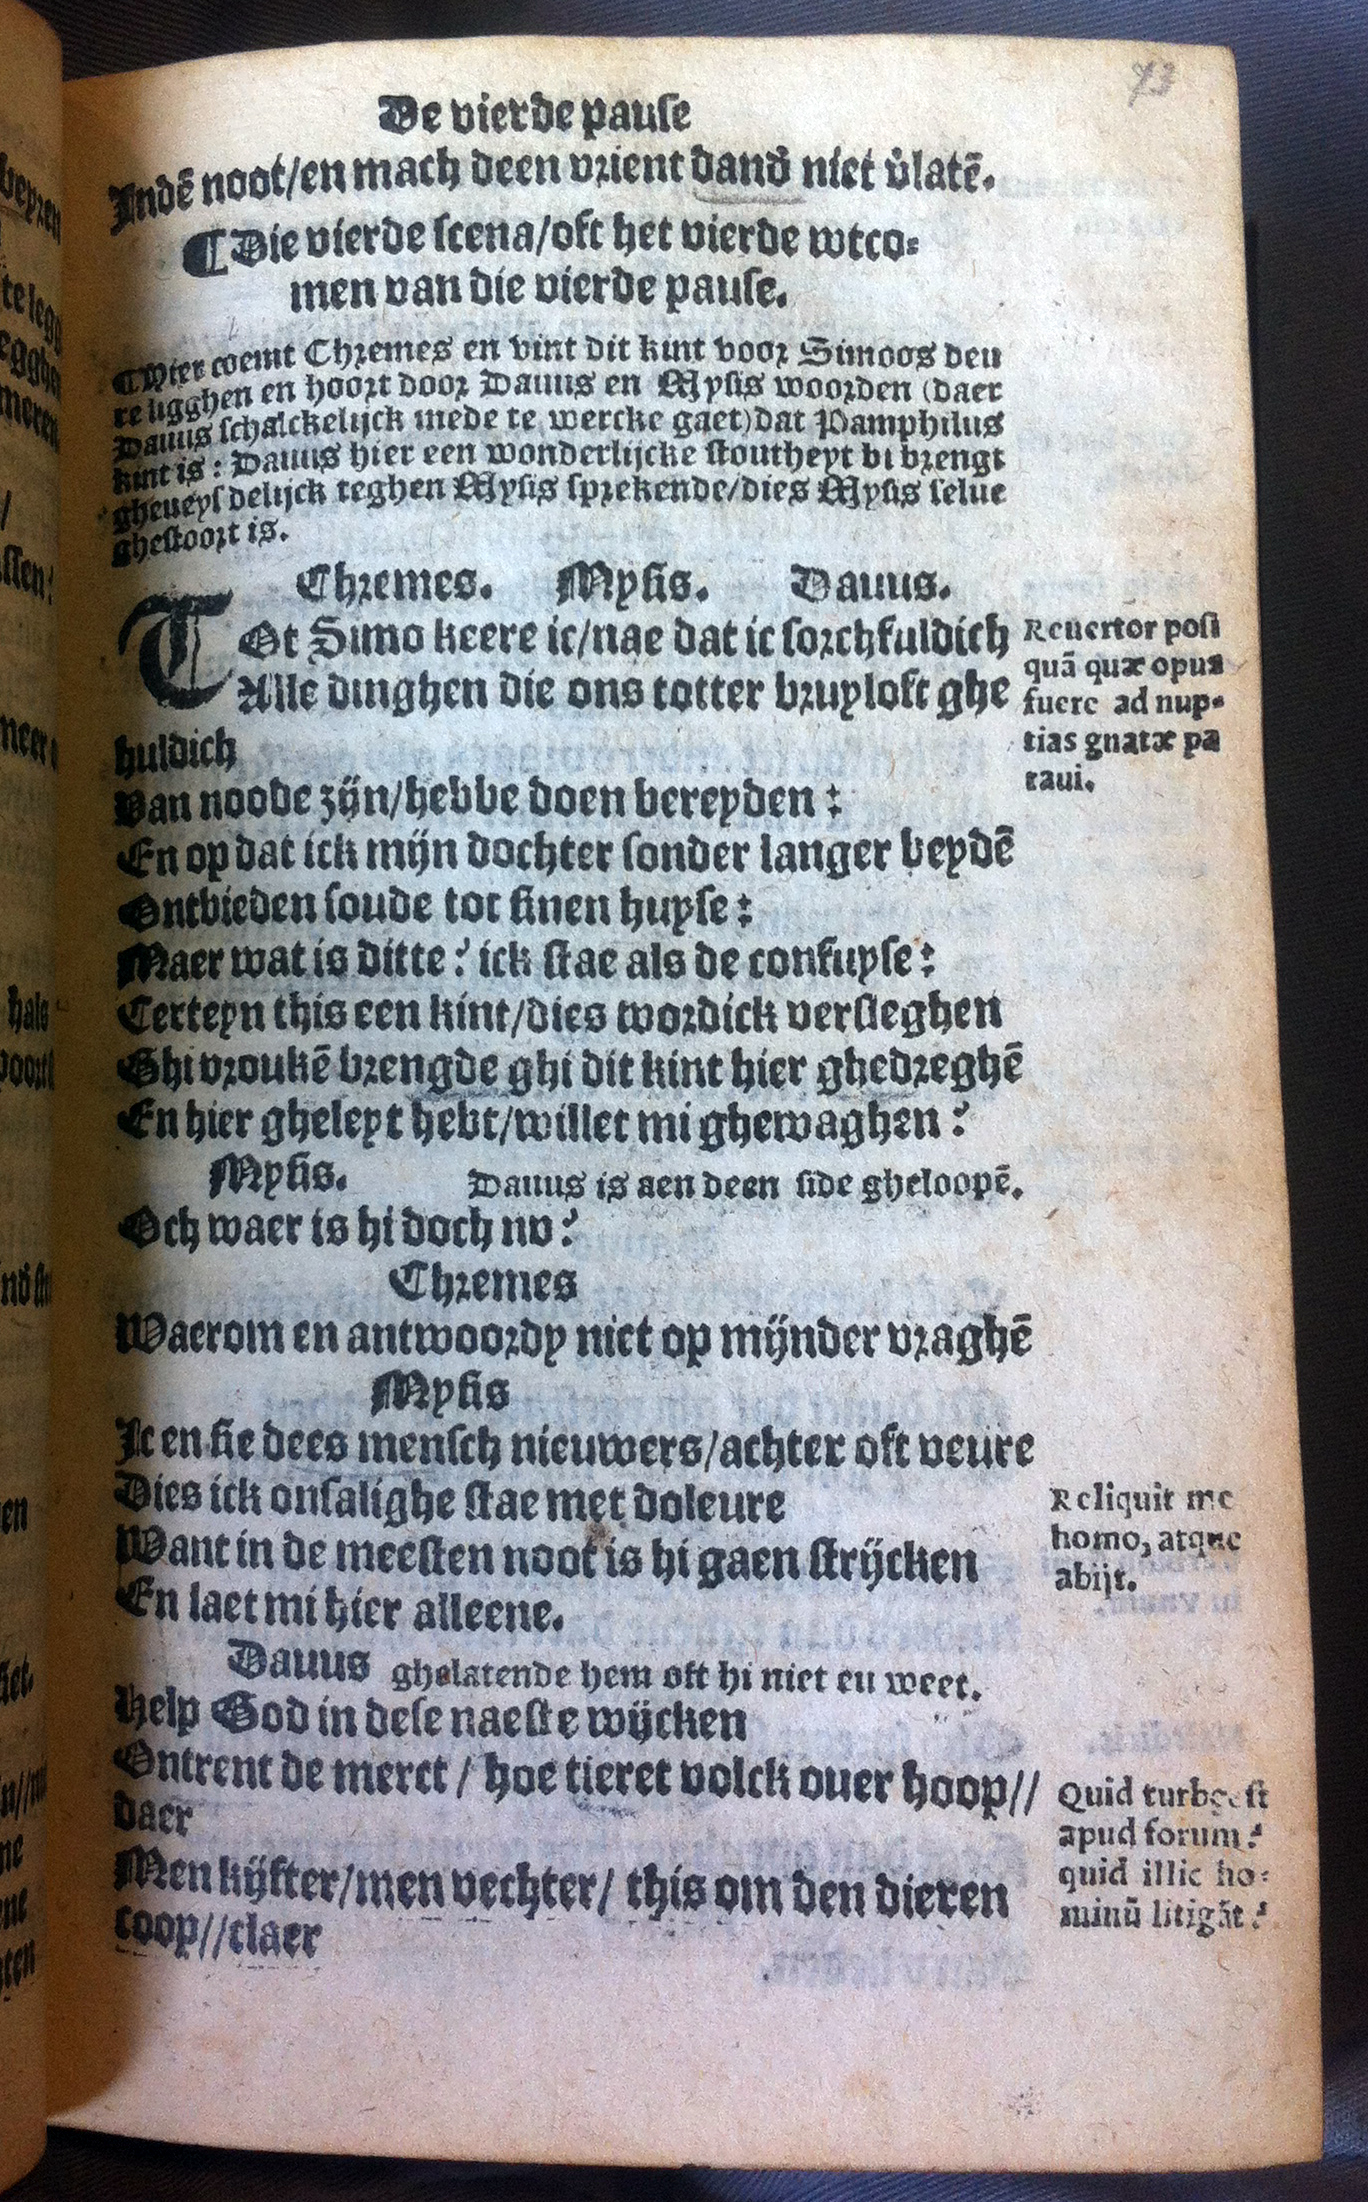 73
De vierde pause
Indē noot/en mach deen vrient dand̓ niet v̓latē.
¶ Die vierde scena/oft het vierde wtco⸗
men van die vierde pause.
¶ Hier coemt Chremes en vint dit kint voor Simoos deu
re ligghen en hoort door Dauus en Mysis woorden (daer
Dauus schalckelijck mede te wercke gaet) dat Pamphilus
kint is: Dauus hier een wonderlijcke stoutheyt bi brengt
gheueysdelijck teghen Mysis sprekende/dies Mysis selue
ghestoort is.
Chremes. Mysis. Dauus.
TOt Simo keere ic/nae dat ic sorchfuldich
Alle dinghen die ons totter bruyloft ghe
huldich
Van noode zijn/hebbe doen bereyden:
En op dat ick mijn dochter sonder langer beydē
Ontbieden soude tot sinen huyse:
Maer wat is ditte? ick stae als de confuyse:
Certeyn this een kint/dies wordick versleghen
Ghi vroukē brengde ghi dit kint hier ghedreghē
En hier gheleyt hebt/willet mi ghewaghen?
Mysis. Dauus is aen deen side gheloopē.
Och waer is hi doch nv?
Chremes
Waerom en antwoordy niet op mijnder vraghē
Mysis
Ic en sie dees mensch nieuwers/achter oft veure
Dies ick onsalighe stae met doleure
Want in de meesten noot is hi gaen strijcken
En laet mi hier alleene.
Dauus ghelatende hem oft hi niet en weet.
Help God in dese naeste wijcken
Ontrent de merct / hoe tieret volck ouer hoop//
daer
Men kijfter/men vechter/ this om den dieren
coop//claer
Reuertor post
quā quæ opus
fuere ad nup⸗
tias gnatæ pa
raui.
Reliquit me
homo, atque
abijt.
Quid turbę est
apud forum?
quid illic ho⸗
minū litigāt?